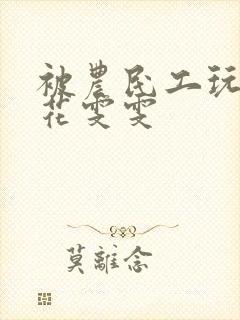 被農民工玩
花雯雯
莫離念